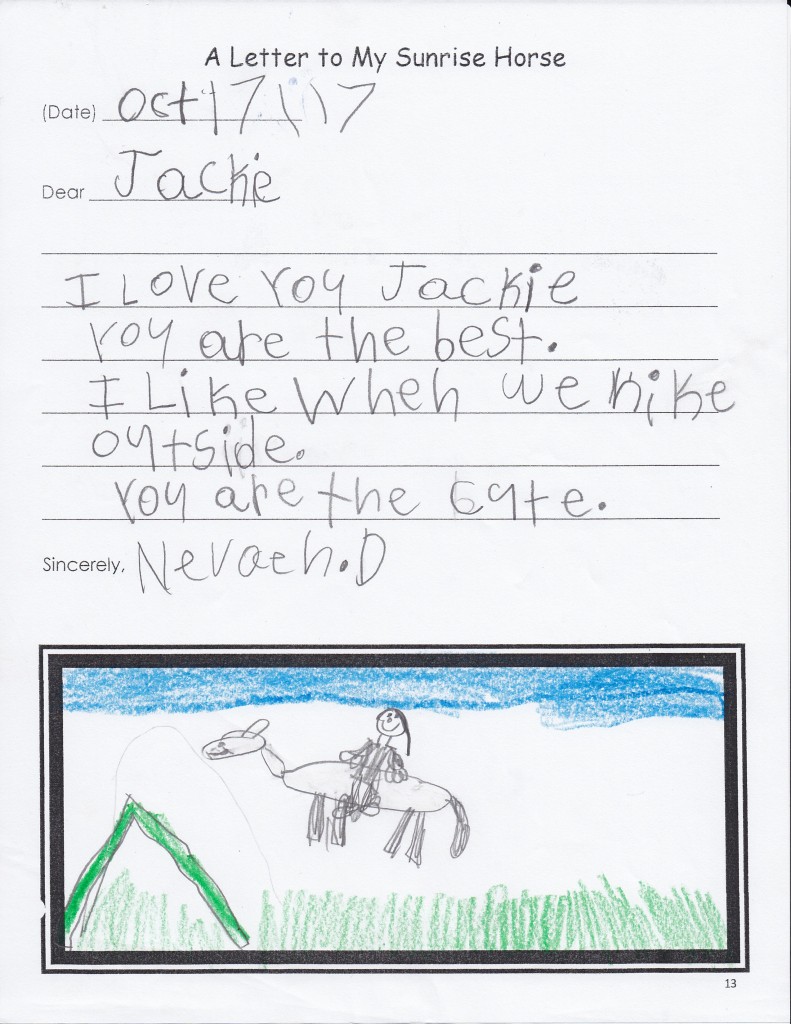 A Letter to My Sunrise Horse
(Date) Oct 17\17
Dear Jackie
I Love you Jackie
you are the best.
I Like when we hike
outside.
you are the cute.
Sincerely, Nevaeh.D
13